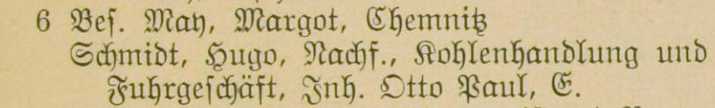 6 Bes. May, Margot, Chemnitz
Schmidt, Hugo, Nachf., Kohlenhandlung und
Fuhrgeschäft, Inh. Otto Paul, E.